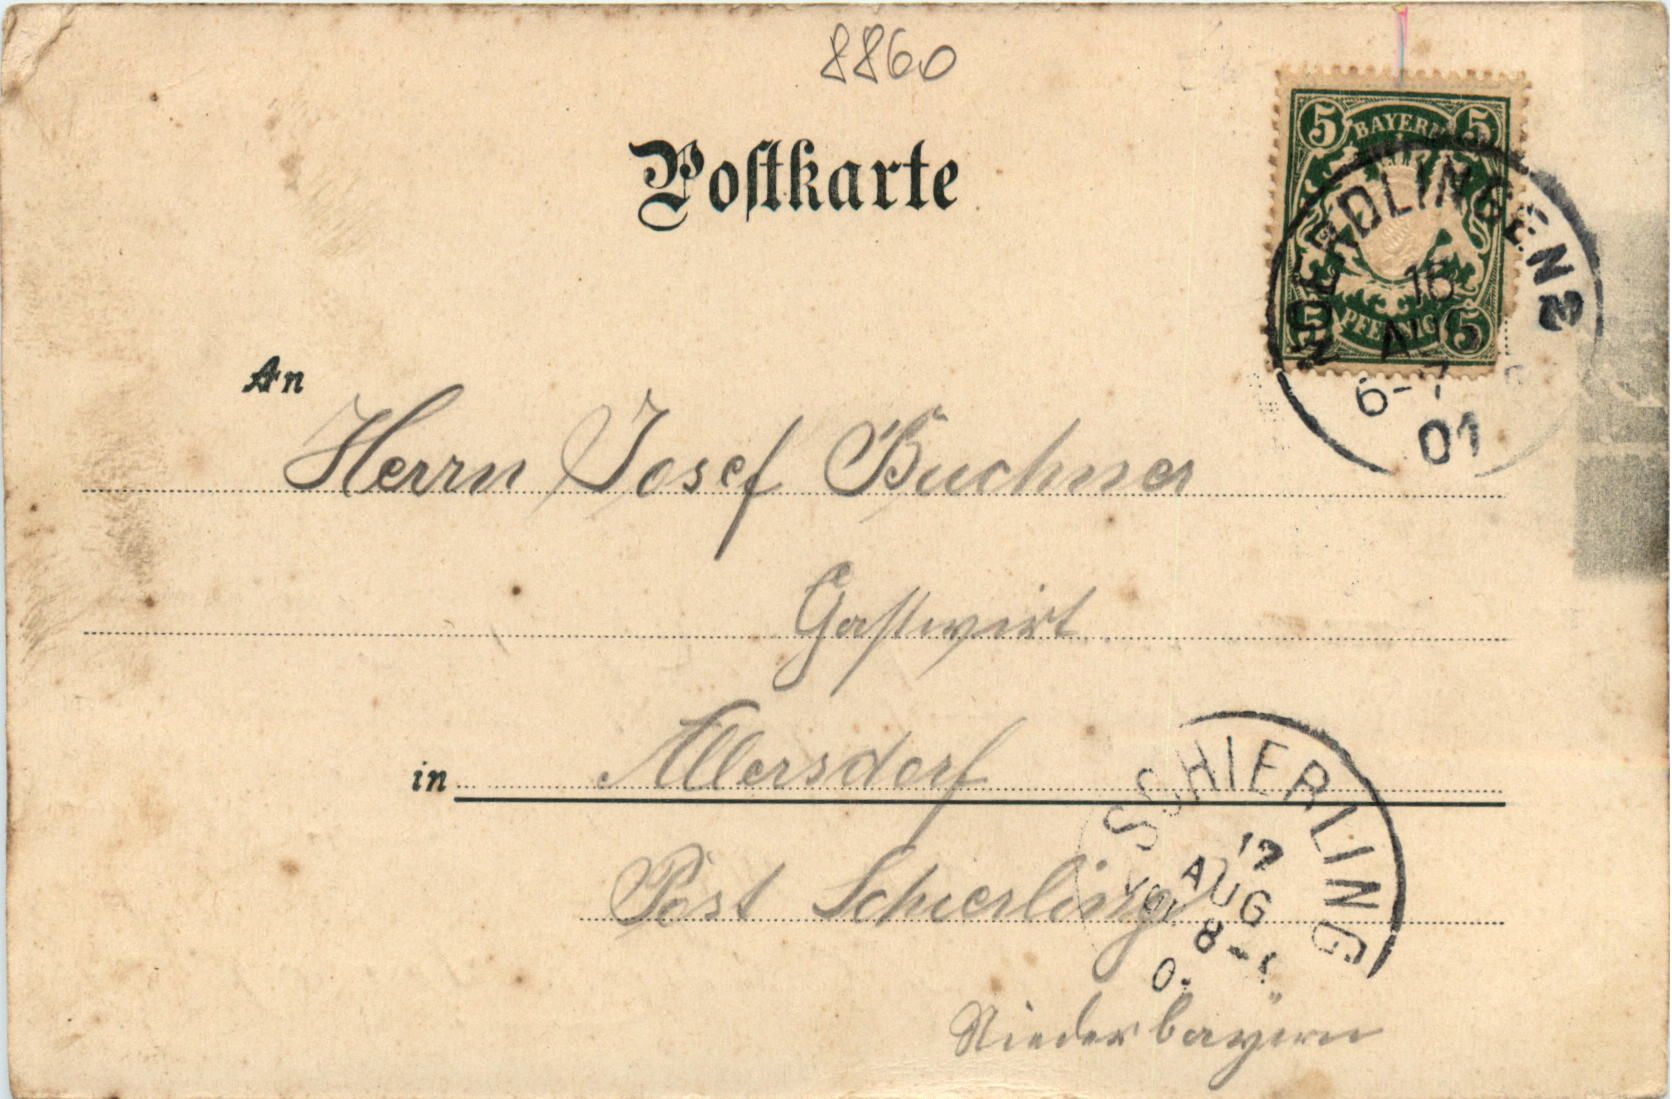 8860
Postkarte
5 BAYERN 5
PFENNIG 5
NOERDLINGEN 2
16
AUG
6-7
01
An
Herrn Josef Buchner
Gastwirt
in Allersdorf
Post Schierling
SCHIERLING
17
AUG
8-
Niederbayern